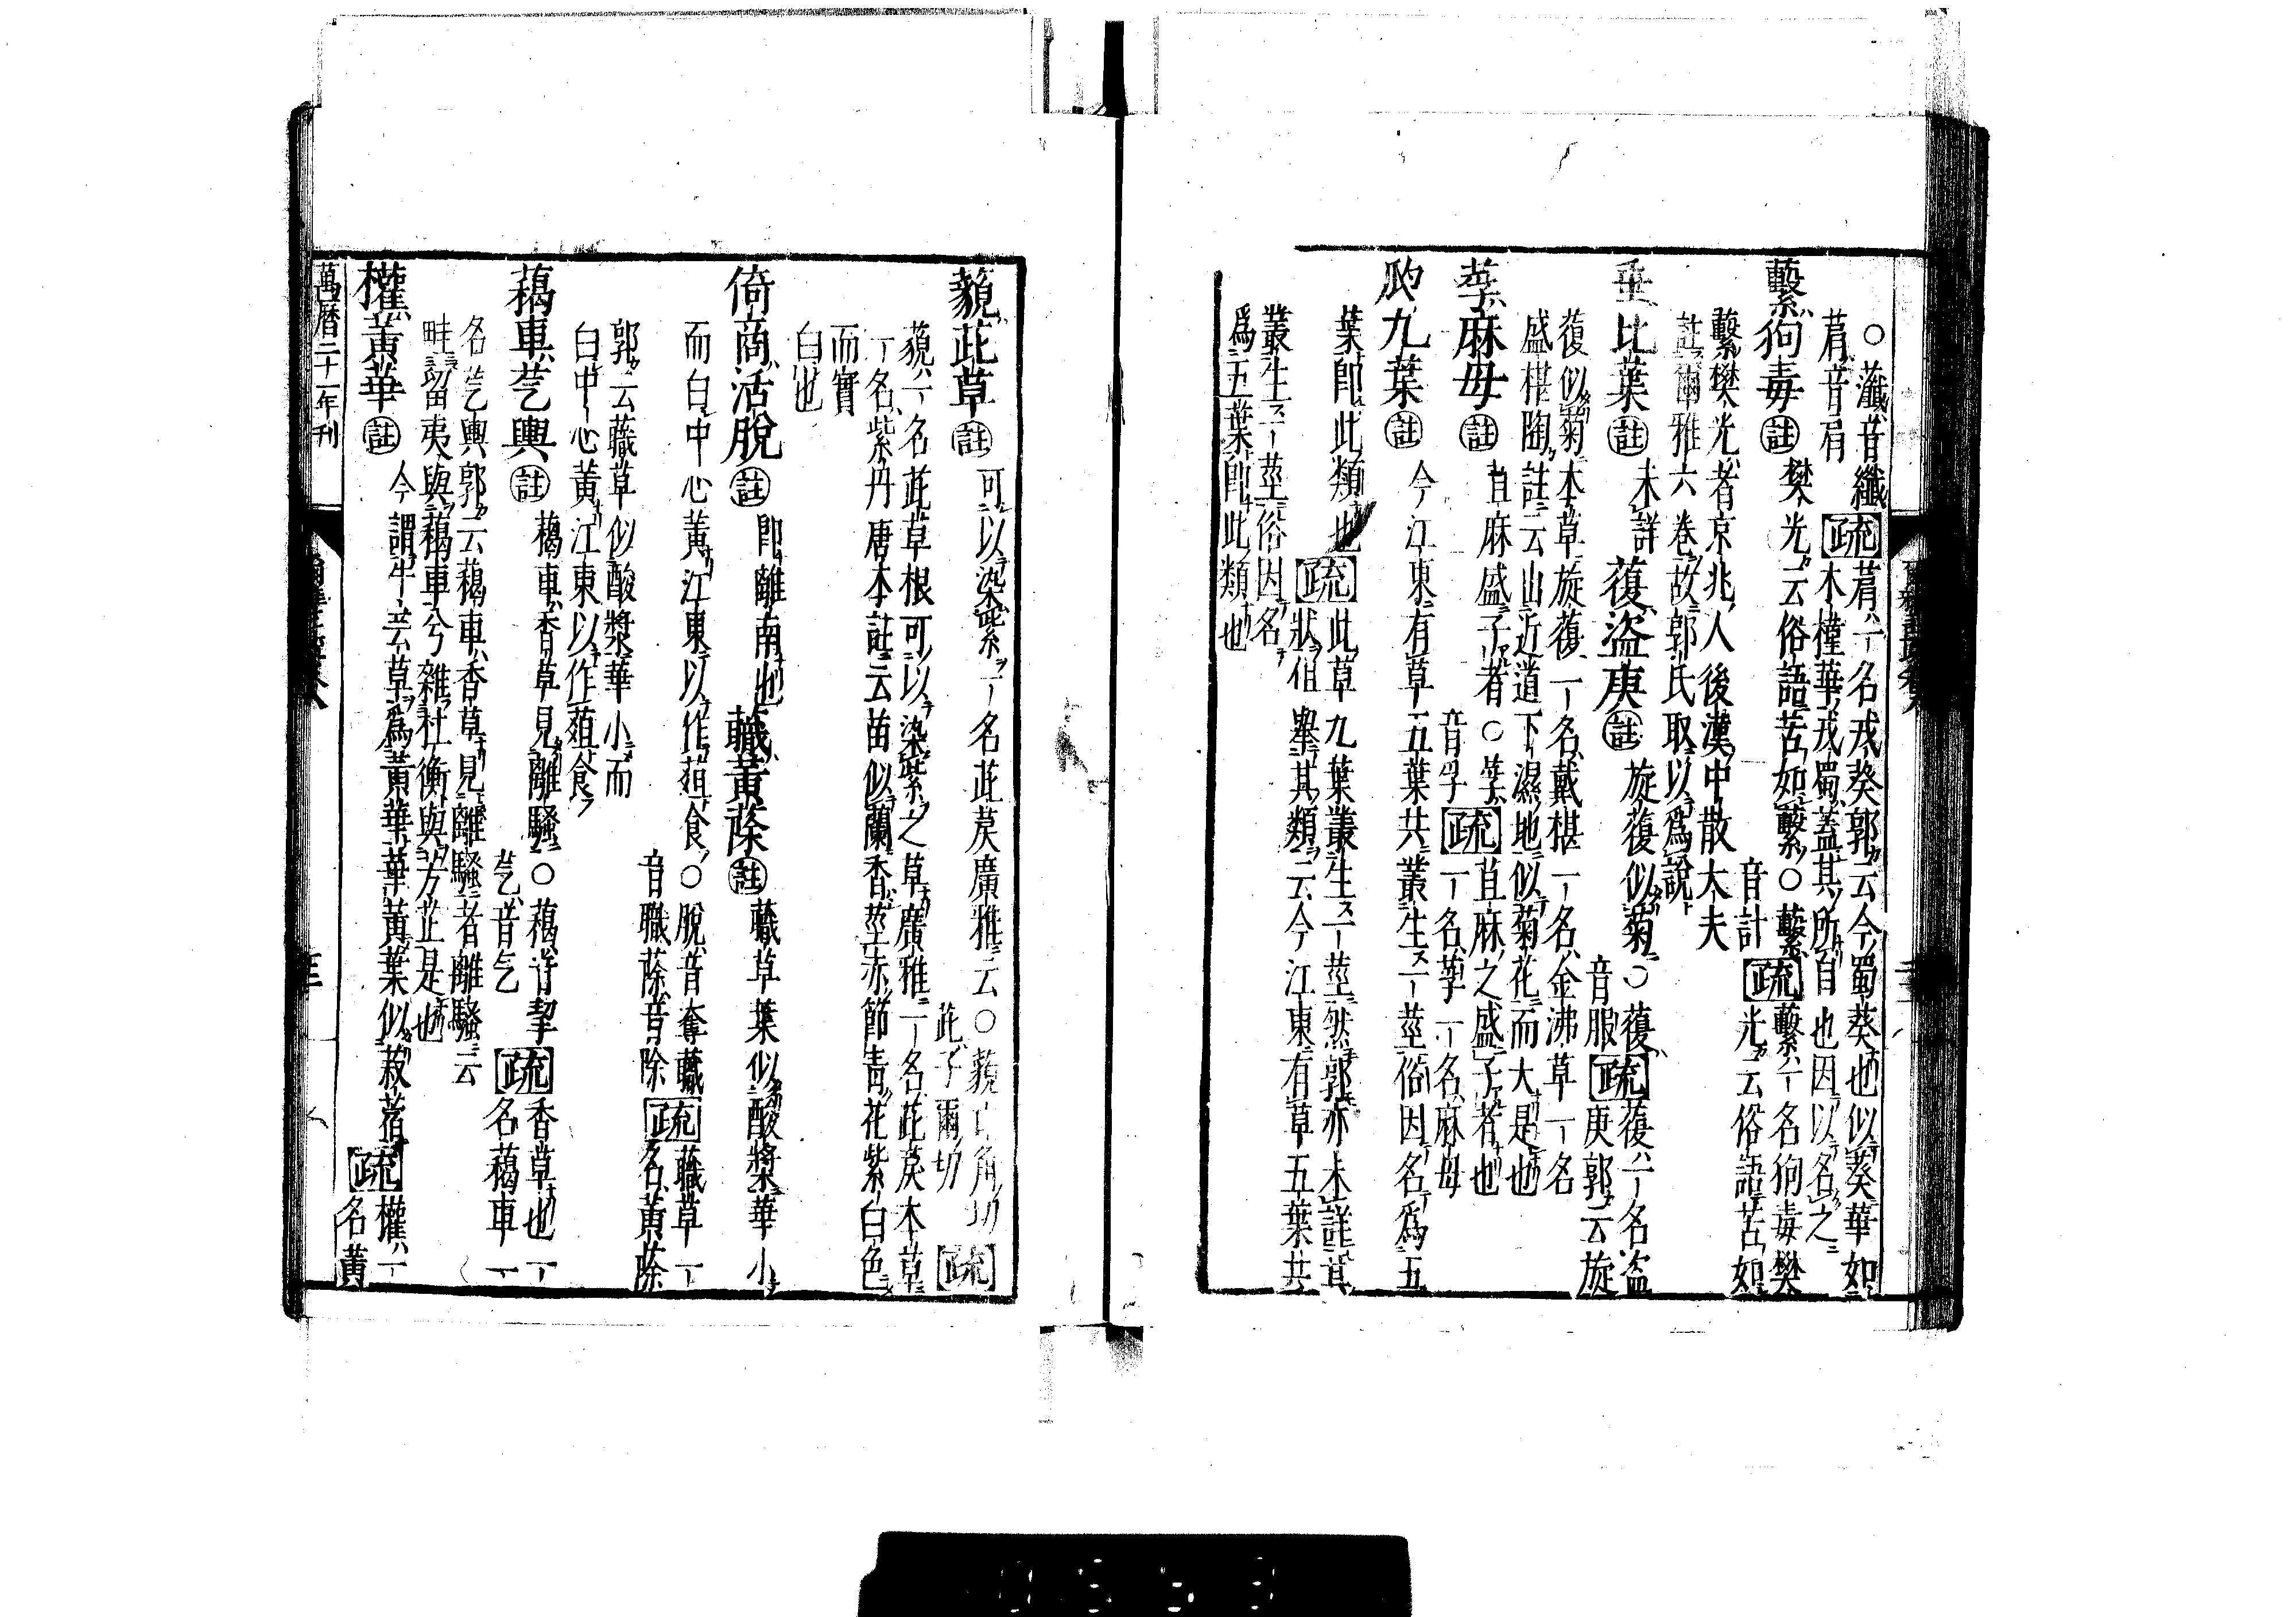 ○虃音纖
肩音肩
疏
菺一名戎葵郭云今蜀葵也似葵華如
木槿華戎蜀蓋其所自也因以名之
蘻狗毒註
樊光云俗語苦如蘻○蘻
音計
疏
蘻一名狗毒樊
光云俗語苦如
蘻樊光者京兆人後漢中散大夫
註爾雅六卷故郭氏取以為說
垂比葉註
未詳
蕧盜庚註
旋蕧似菊○蕧
音服
疏
蕧一名盜
庚郭云旋
蕧似菊本草旋蕧一名戴椹一名金沸草一名
盛椹陶註云山近道下濕地似菊花而大是也
荸麻母註
苴麻盛子者○荸
音孚
疏
苴麻之盛子者也
一名荸一名麻母
瓝九葉註
今江東有草五葉共叢生一莖俗因名為五
葉即此類也
疏
此草九葉叢生一莖然郭亦未詳其
狀但舉其類云今江東有草五葉共
叢生一莖俗因名
為五葉即此類也
藐茈草註
可以染紫一名茈䓞廣雅云○藐亡角切
茈子爾切
疏
藐一名茈草根可以染紫之草廣雅一名茈䓞本草
一名紫丹唐本註云苗似蘭香莖赤節青花紫白色
而實
白也
倚商活脫註
即離南也
蘵黃蒢註
蘵草葉似酸漿華小
而白中心黃江東以作葅食○脫音奪蘵
音職蒢音除
疏
蘵草一
名黃蒢
郭云蘵草似酸漿華小而
白中心黃江東以作葅食
藒車芞輿註
藒車香草見離騷○藒音挈
芞音乞
疏
香草也一
名藒車一
名芞輿郭云藒車香草見離騷者離騷云
畦留夷與藒車兮雜杜衡與芳芷是也
權黃華註
今謂牛芸草為黃華華黃葉似荍蓿
疏
權一
名黃
萬曆二十一年刊